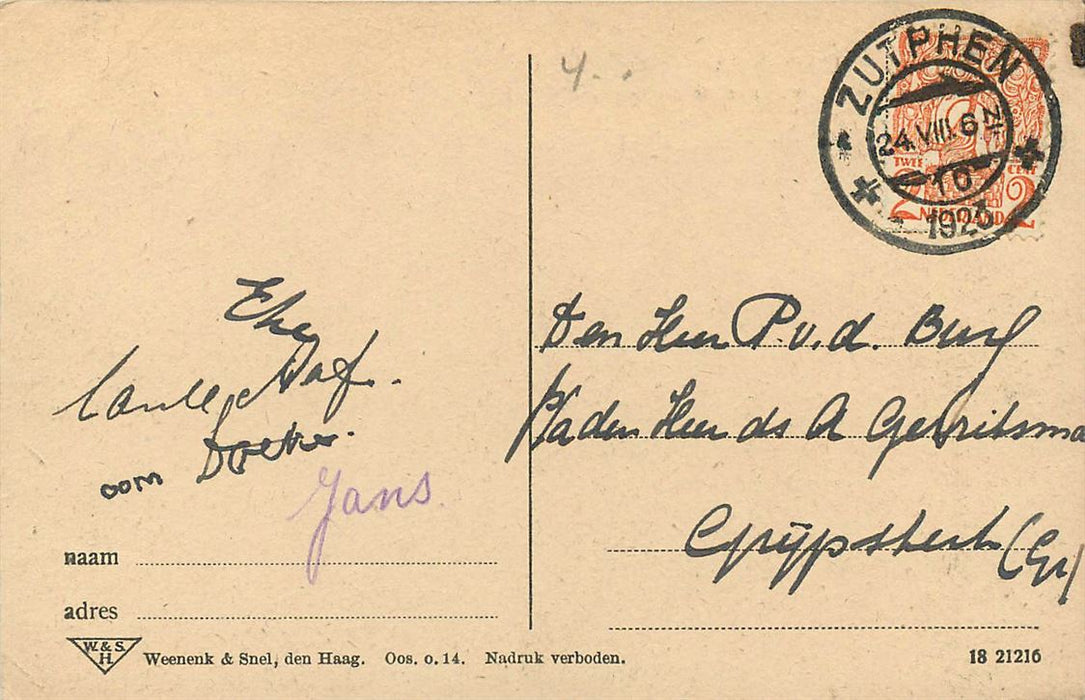 4.
ZUTPHEN
24.VIII.6
10
1923
TWEE CENT
2 NEDERLAND 2
Den Heer P. v. d. Burg
p/a den Heer ds A Gerritsma
Grijpskerk (Gr)
tante
oom
Jans
naam
adres
W. & S.
H.
Weenenk & Snel, den Haag. Oos. o. 14. Nadruk verboden.
18 21216